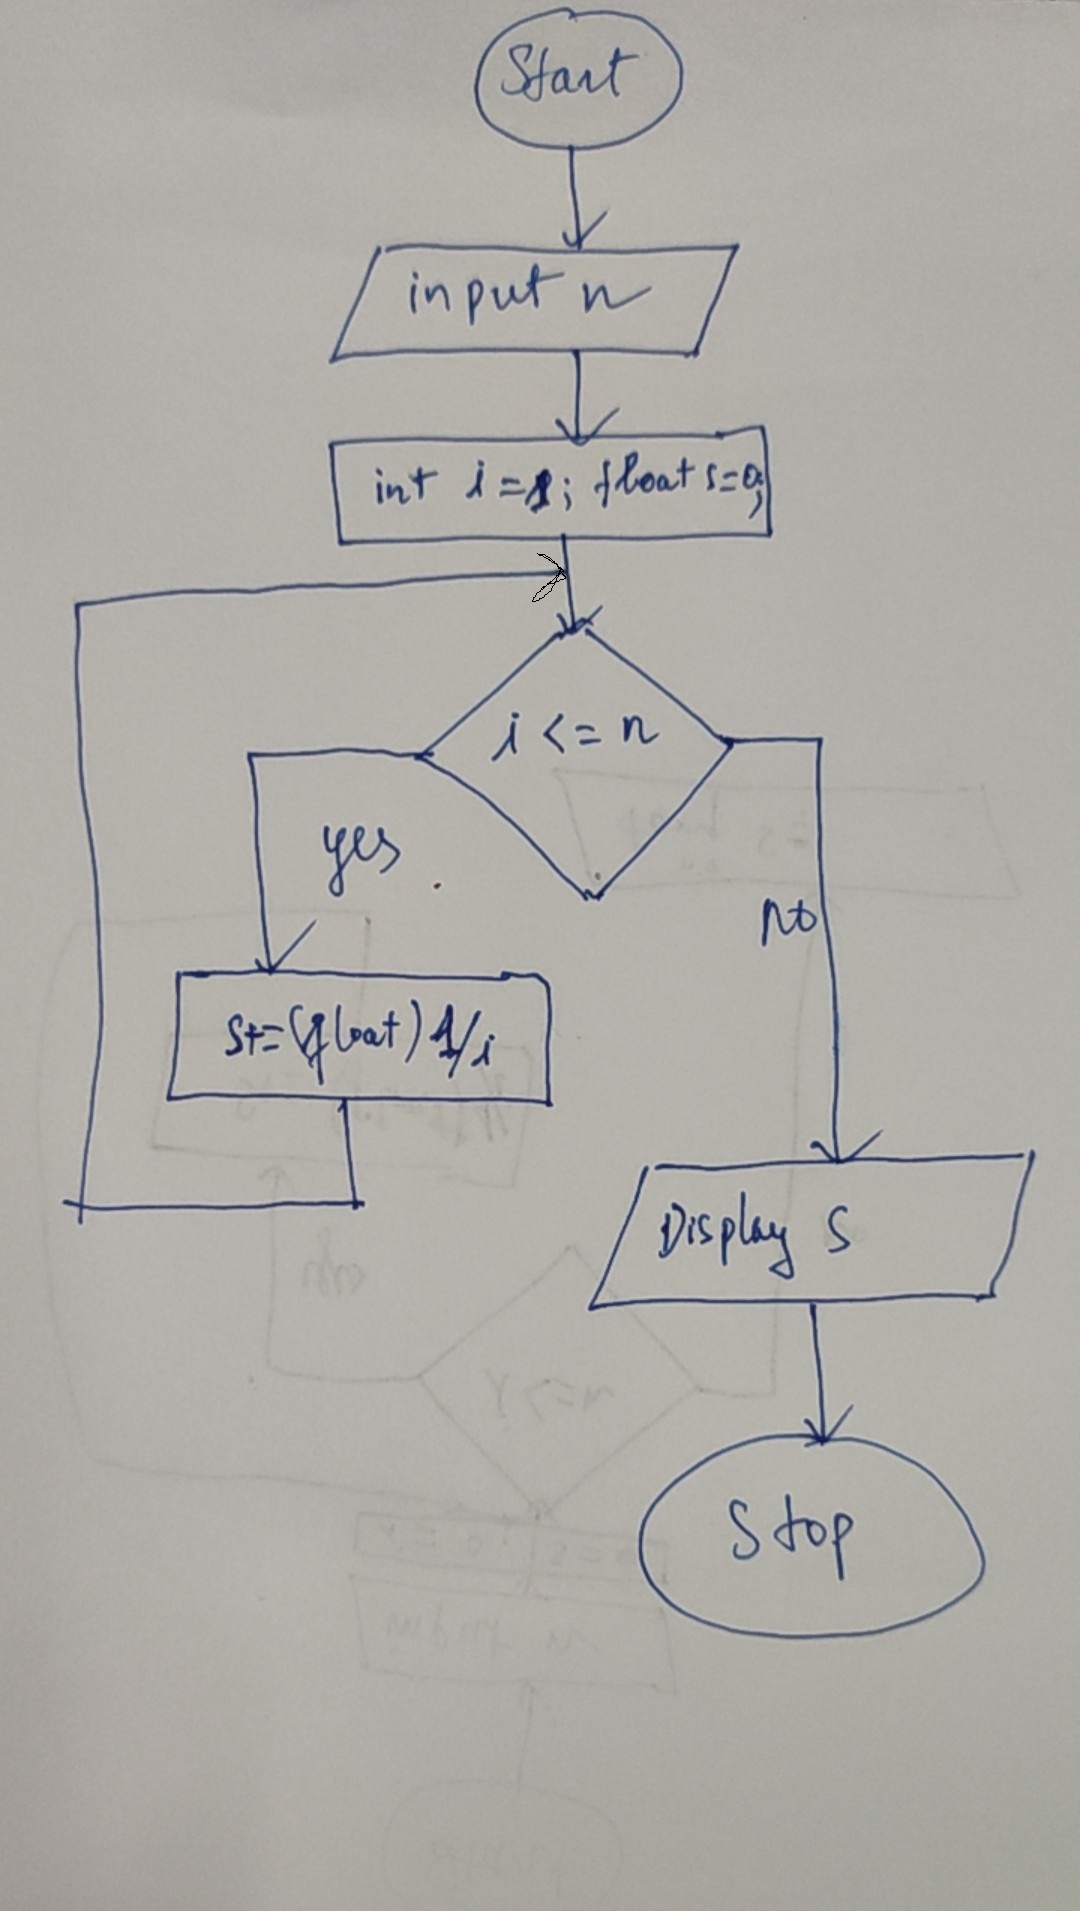 Start
input n
int i = 1; float s=0;
i <= n
yes
no
S+=(float) 1/i
Display S
Stop